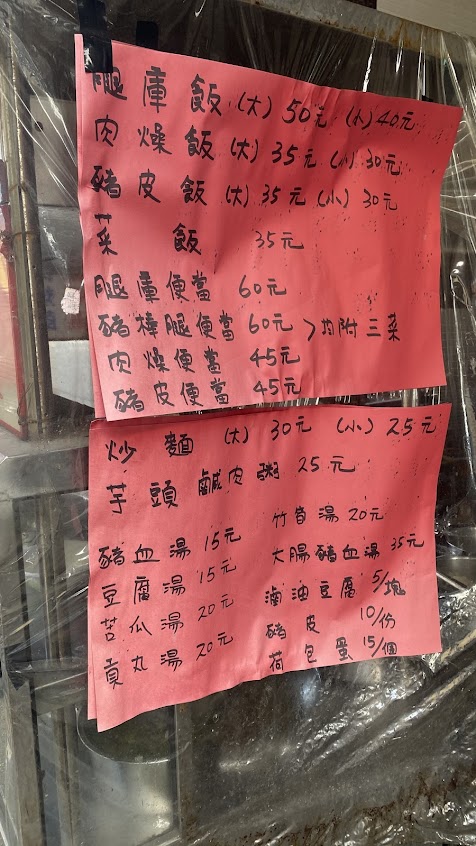 腿庫飯(大)50元(小)40元
肉燥飯(大)35元(小)30元
豬皮飯(大)35元(小)30元
菜飯 35元
腿庫便當 60元
豬棒腿便當 60元 >均附三菜
肉燥便當 45元
豬皮便當 45元
炒麵(大)30元(小)25元
芋頭鹹肉粥 25元
竹旬湯20元
豬血湯 15元
大腸豬血湯35元
豆腐湯 15元
滷油豆腐 5/塊
苦瓜湯 20元
豬皮 10/份
貢丸湯 20元
荷包蛋 15/個